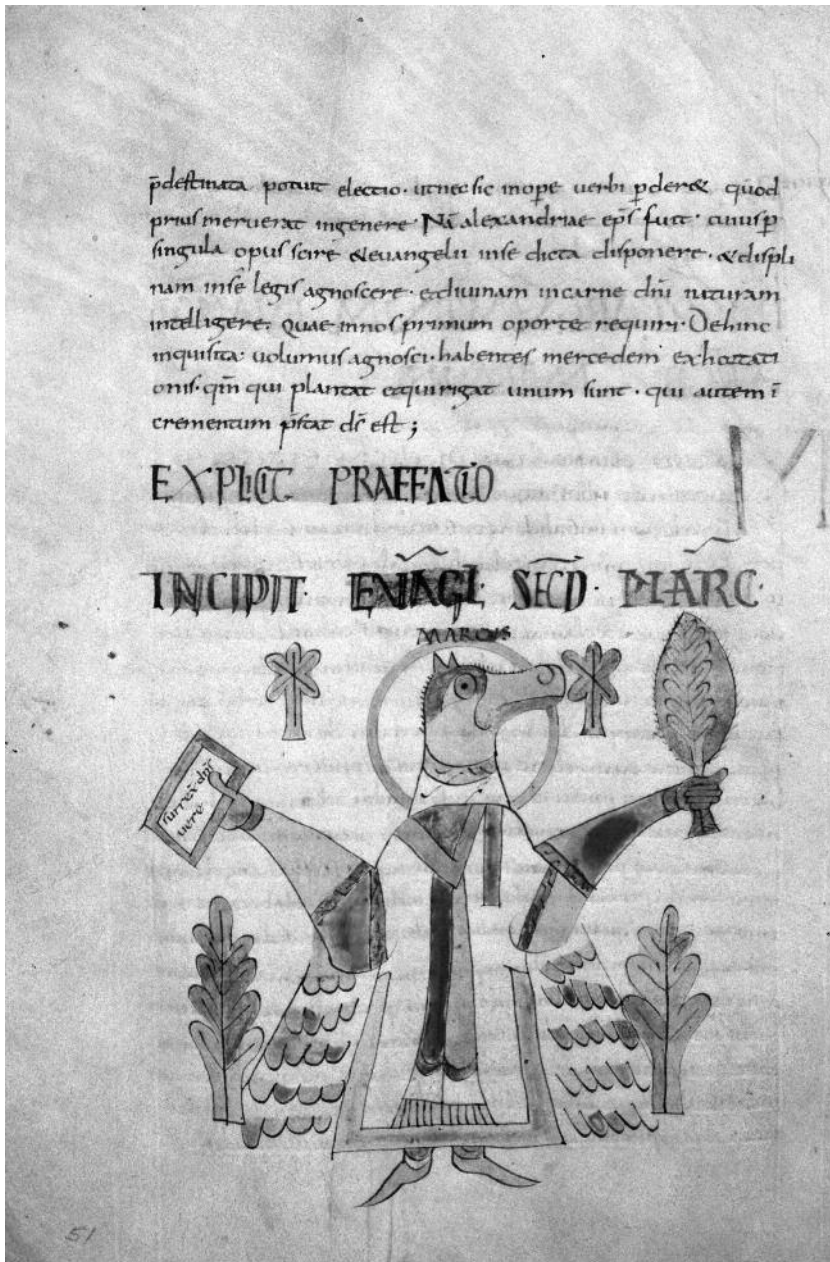 p̄destinata potuit electio· ut nec sic in ope verbi p̄der& quod
prius meruerat in genere· Nā alexandriae ep̄s fuit· cuius p̄
singula opus scire & evangelii in se dicta disponere· & displi
nam in se legis agnoscere· et divinam in carne dn̄i naturam
intellegere· Quae in nos primum oporte requiri· Dehinc
inquisita volumus agnosci· habentes mercedem exhortati
onis· qm̄ qui plantat et qui rigat unum sunt· qui autem ī
crementum p̄stat ds̄ est;
EXPLICIT PRAEFATIO
INCIPIT· EVAGL· SECD̄· MARC·
MARCUS
surrex dn̄s
vere
51